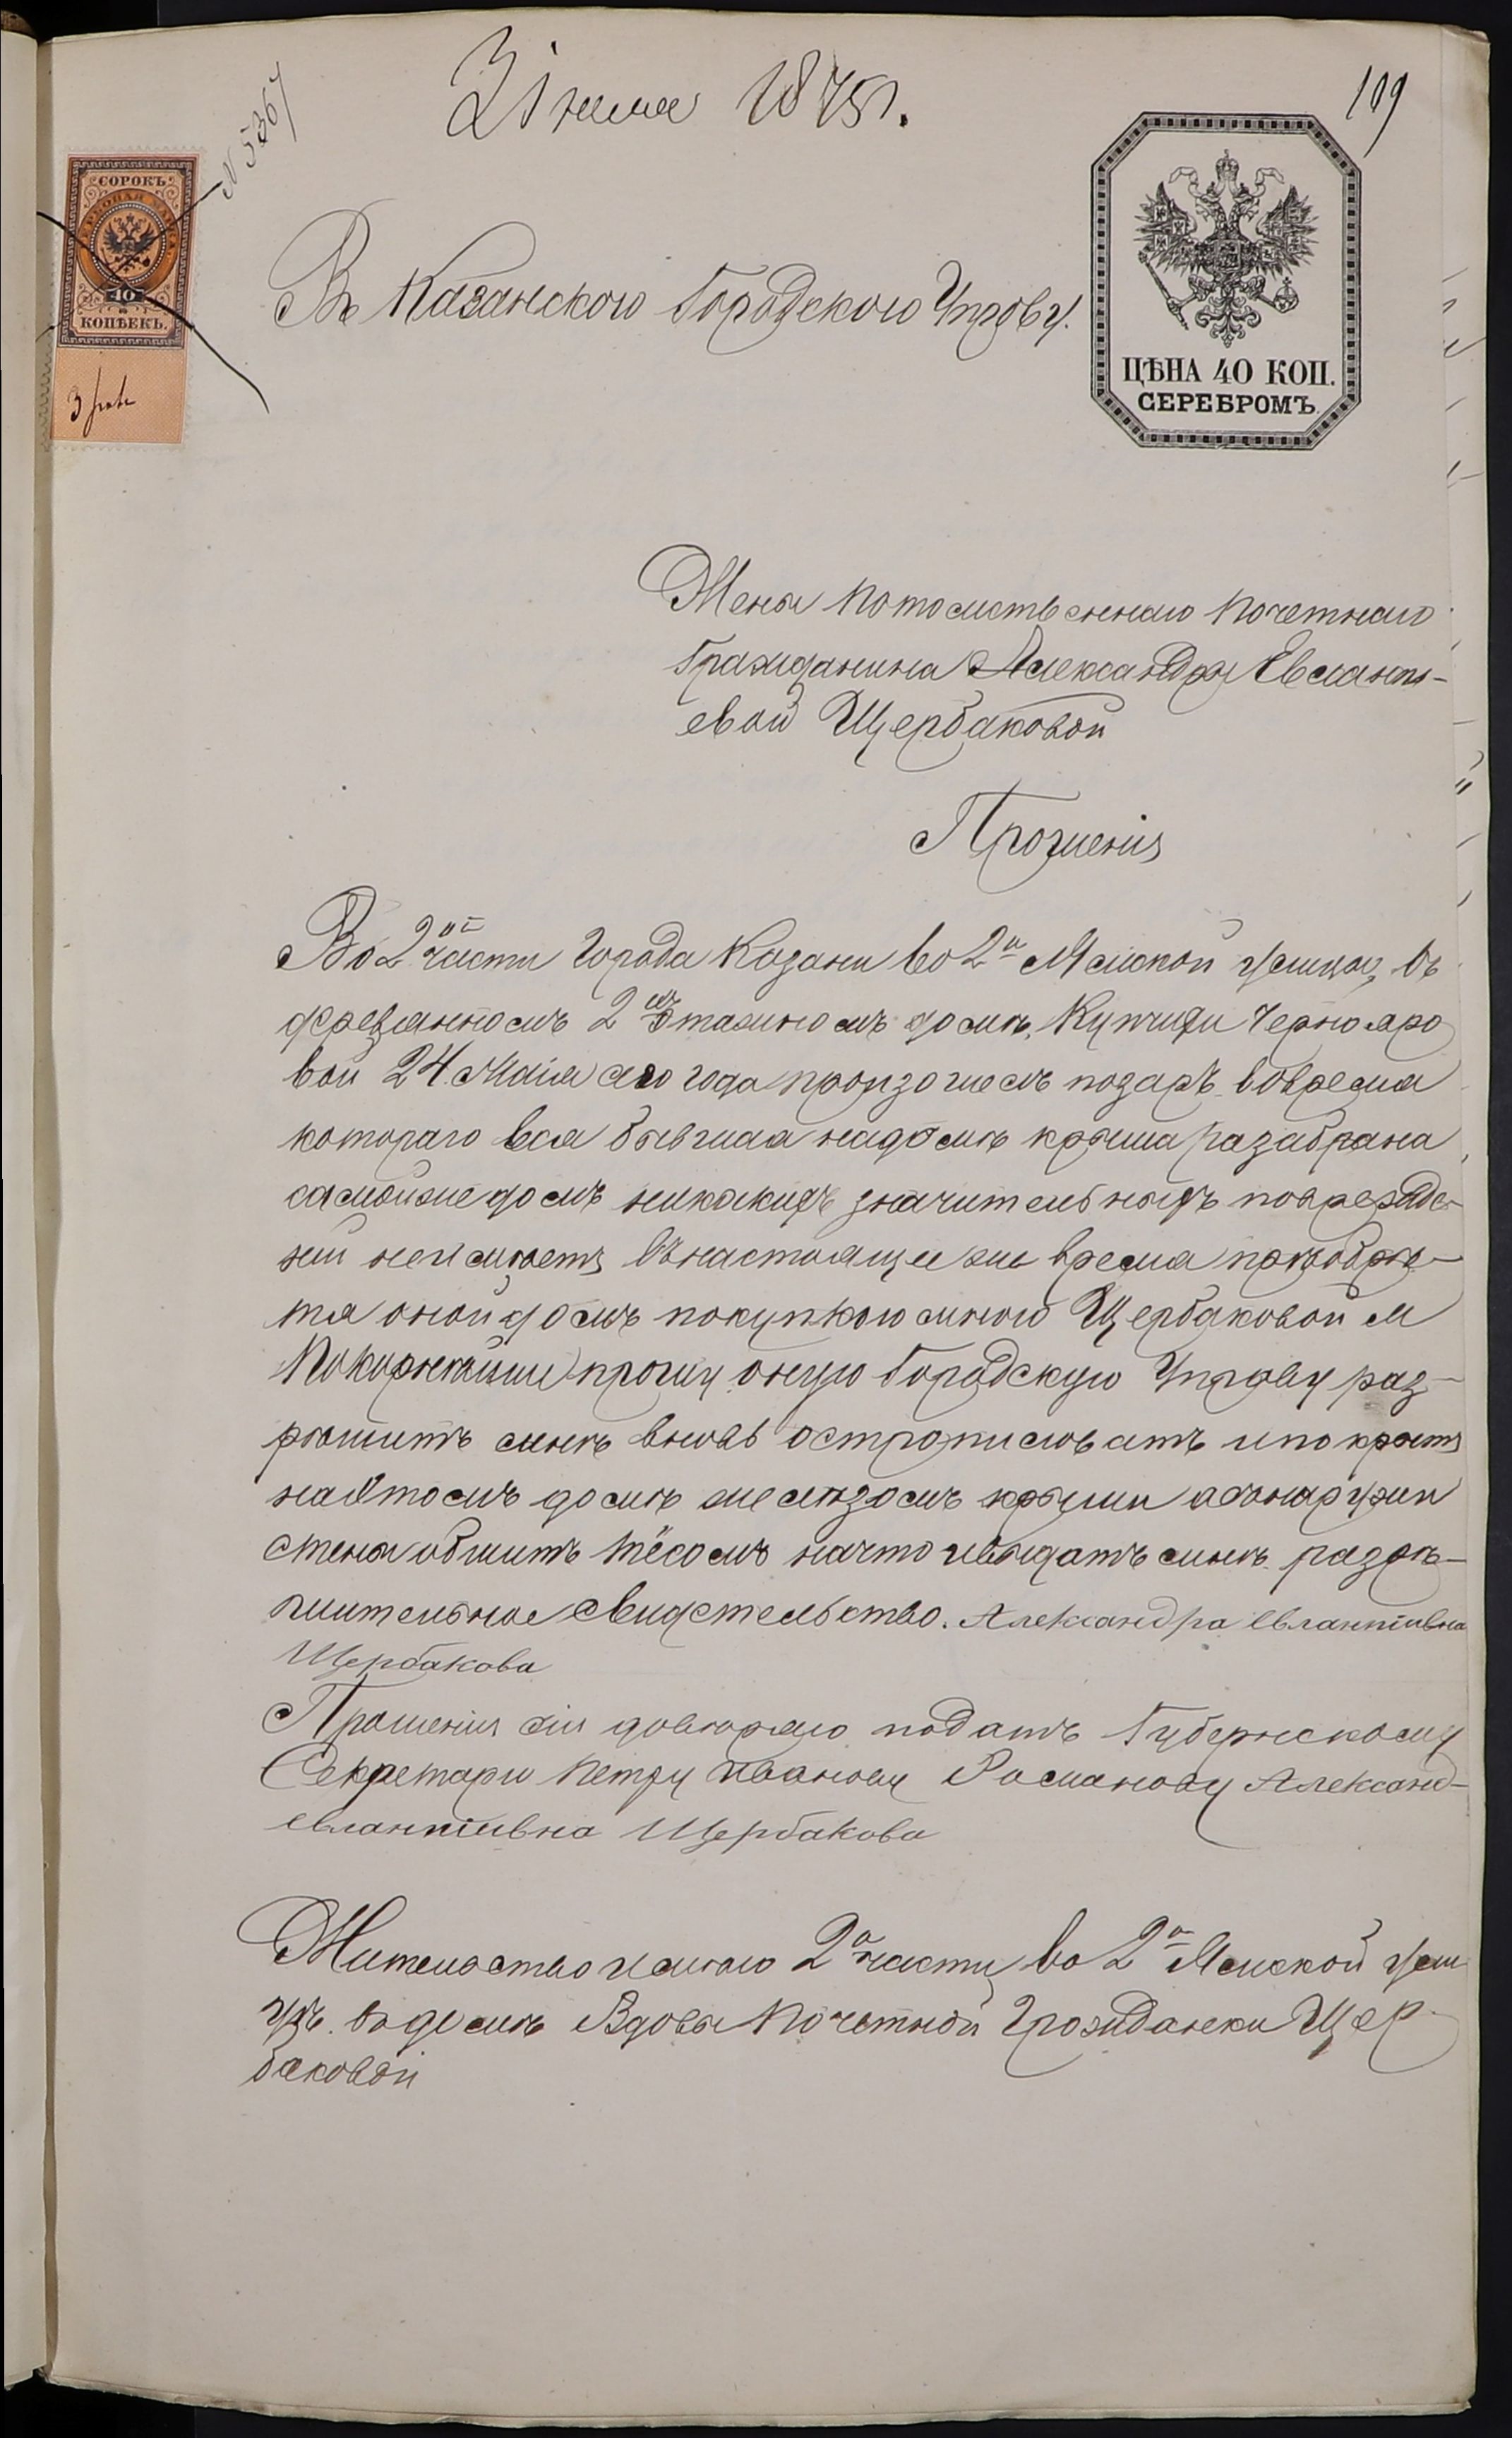 3 Іюня 1875 г.
109
№ 5367
СОРОКЪ
ГЕРБОВАЯ МАРКА
40
КОПѢЕКЪ.
ЦѢНА 40 КОП.
СЕРЕБРОМЪ.
Въ Казанскою Городскою Управу.
Жены Потомственнаго Почетнаго
Гражданина Александры Евлампі-
евой Щербаковой
Прошенія
Во 2ой части Города Казани во 2й Ямской улицы, въ
деревянномъ 2хъ этажномъ доме, Купчихи Чернояро
вой 24 Маія сего года произошелъ пожаръ вовремя
котораго вся бывшая надоме крыша разабрана
самойже домъ никакихъ значительныхъ поврежде-
ний неимѣетъ вънастоящее же время пріобрѣ-
тя оной домъ покупкою мною Щербаковой и
Покорнейши прошу оную Городскую Управу раз-
рѣшить мнѣ вновь остропиловать и покрыть
наэтомъ домѣ желѣзомъ крыши аснаружи
стены обшить тёсомъ начто и выдать мнѣ разрѣ-
шительное свидетельство. Александра Евлампіивна
Щербакова
Прошения сія довѣряю подать Губернскому
Секретарю Петру Иванову Романову Александ-
Евлампіивна Щербакова
Жительство имѣю 2й части во 2й Ямской ули
цѣ. в доме Вдовы Почетной Гражданки Щер
баковой